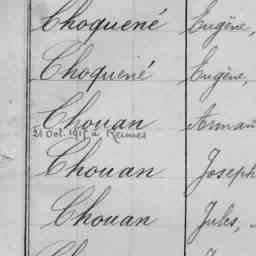 Choquené Eugène,
Choquené Eugène,
Chouan
21 Oct. 1917 à Rennes
Chouan Joseph
Chouan Jules,